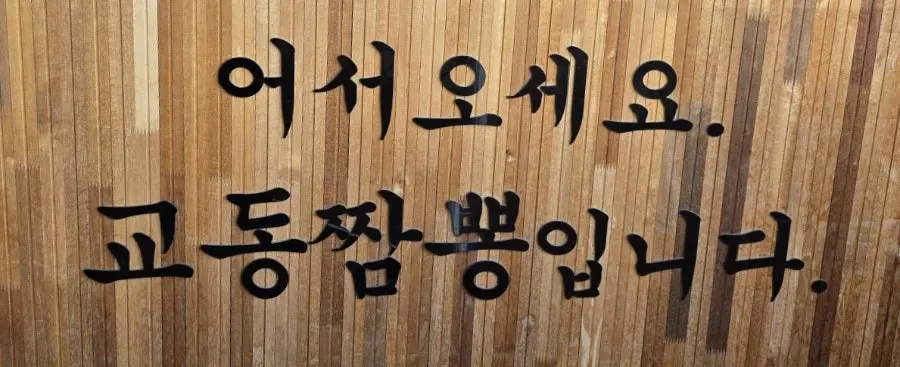 어서오세요.
교동짬뽕입니다.